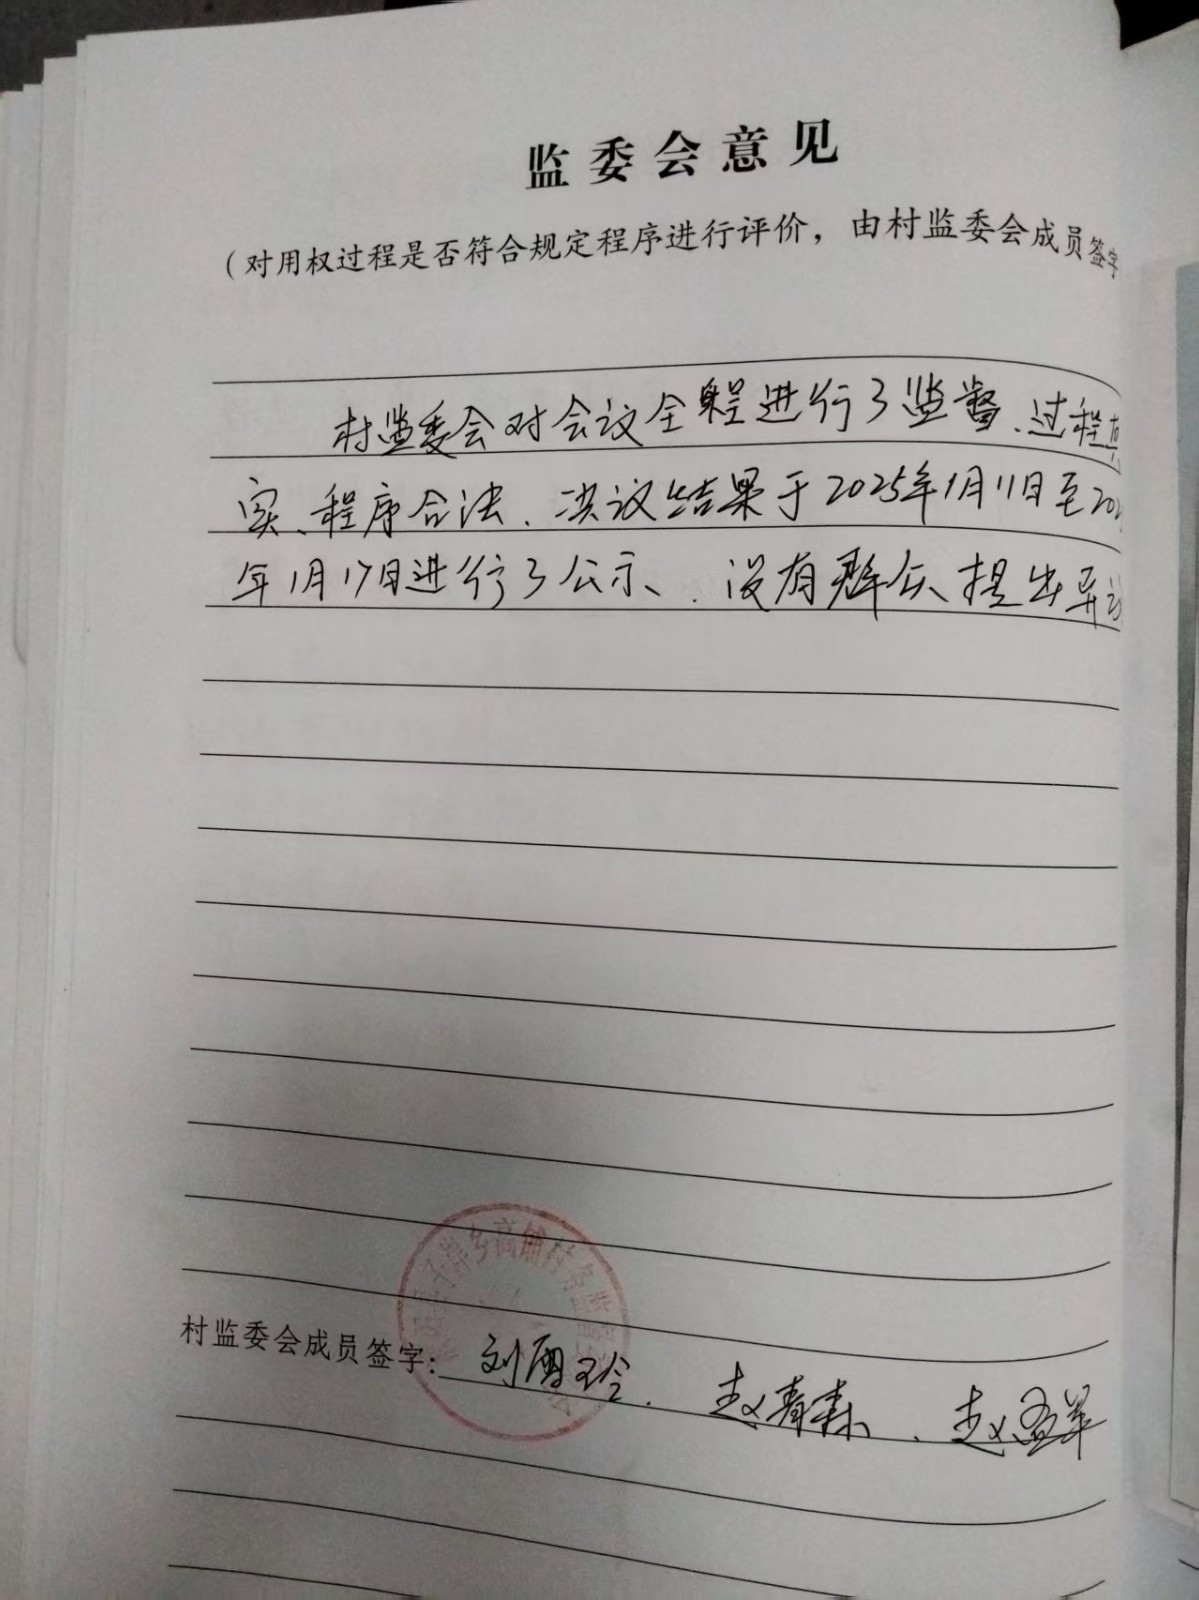 监委会意见
（对用权过程是否符合规定程序进行评价，由村监委会成员签字
村监委会对会议全程进行了监督、过程真
实、程序合法、决议结果于2025年1月11日至202
年1月17日进行了公示、没有群众提出异议
乡高铺村务监督
村监委会成员签字：刘雨玲、赵青森、赵